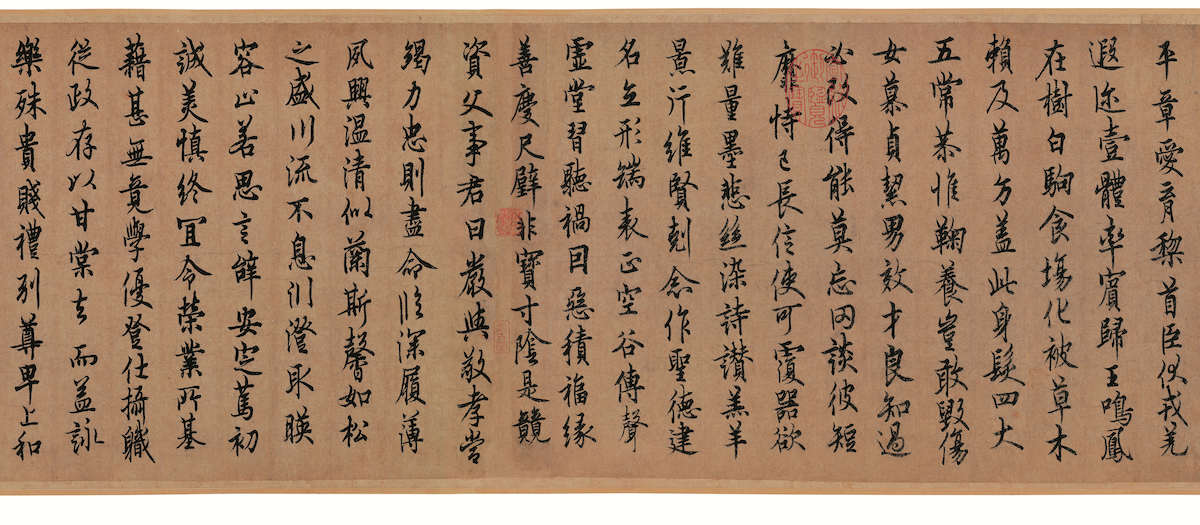 平章愛育黎首臣伏戎羌
遐迩壹體率賓歸王鳴鳳
在樹白駒食場化被草木
賴及萬方盖此身髮四大
五常恭惟鞠養豈敢毀傷
女慕貞絜男效才良知過
必改得能莫忘罔談彼短
靡恃己長信使可覆器欲
難量墨悲絲染詩讚羔羊
景行維賢剋念作聖德建
名立形端表正空谷傳聲
虛堂習聽禍因惡積福緣
善慶尺璧非寶寸陰是競
資父事君曰嚴與敬孝當
竭力忠則盡命臨深履薄
夙興温清似蘭斯馨如松
之盛川流不息渊澄取暎
容止若思言辭安定篤初
誠美慎終宜令榮業所基
藉甚無竟學優登仕攝職
從政存以甘棠去而益詠
樂殊貴賤禮別尊卑上和